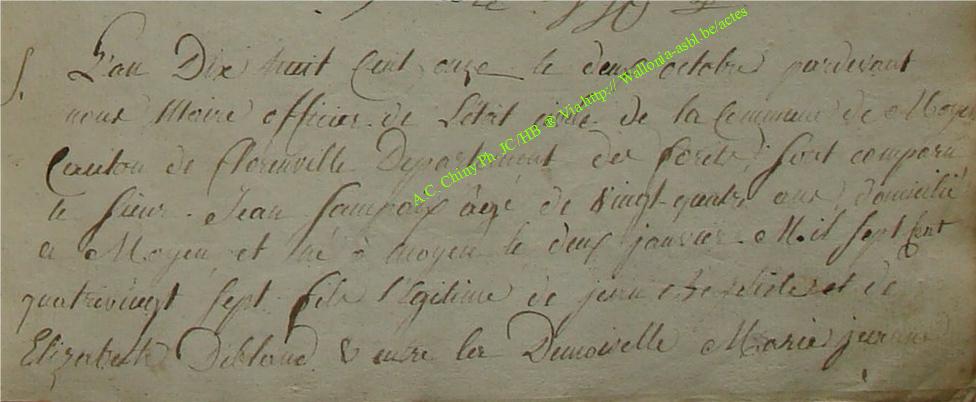 5.
L'an Dix huit Cent onze le deux octobre pardevant
nous Maire officier de L'etat civile de la Commune de Moyen
Canton de Florenville Departement des forets sont comparu
le sieur Jean agé de vingt quatre ans domicilié
a Moyen et né a moyen le deux janvier Mil sept sent
quatrevingt sept fils l'egitime de jean et de
Elizabeth & entre les Demoiselle Marie jeanne
A.C. Chiny Ph. JC/HB ® Via http://Wallonia-asbl.be/actes